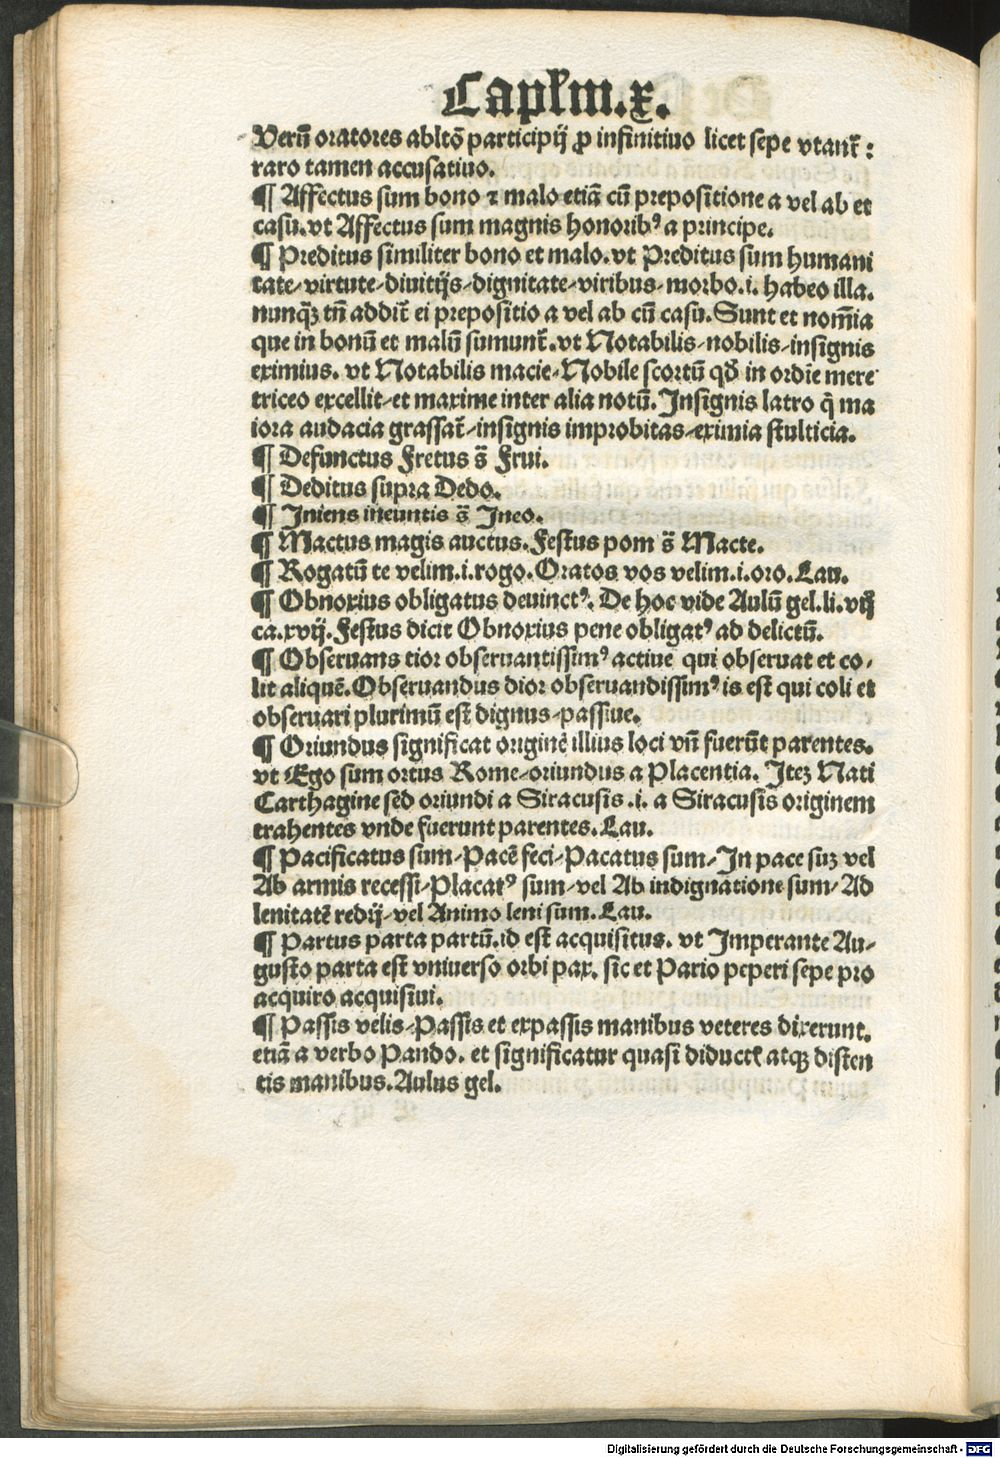 Capl̄m.x.
Verū oratores ablt̄o participij ꝓ infinitiuo licet sepe vtant̄ :
raro tamen accusatiuo.
¶ Affectus sum bono ⁊ malo etiā cū prepositione a vel ab et
casu. vt Affectus sum magnis honoribꝰ a principe.
¶ Preditus similiter bono et malo. vt Preditus sum humani
tate/virtute/diuitijs/dignitate/viribus/morbo.i. habeo illa.
nunqꝫ tn̄ addit̄ ei prepositio a vel ab cū casu. Sunt et nom̄ia
que in bonū et malū sumunt̄. vt Notabilis/nobilis/insignis
eximius. vt Notabilis macie/Nobile scortū qđ in ordīe mere
triceo excellit/et maxime inter alia notū. Insignis latro q̄ ma
iora audacia grassat̄/insignis improbitas/eximia stulticia.
¶ Defunctus Fretus s̄ Frui.
¶ Deditus supra Dedo.
¶ Iniens ineuntis s̄ Ineo.
¶ Mactus magis auctus. Festus pom s̄ Macte.
¶ Rogatū te velim.i.rogo. Oratos vos velim.i.oro. Lau.
¶ Obnoxius obligatus deuinctꝰ. De hoc vide Aulū gel.li.vij
ca.xvij. Festus dicit Obnoxius pene obligatꝰ ad delictū.
¶ Obseruans tior obseruantissimꝰ actiue qui obseruat et co/
lit aliquē. Obseruandus dior obseruandissimꝰ is est qui coli et
obseruari plurimū est dignus/passiue.
¶ Oriundus significat originē illius loci vn̄ fuerūt parentes.
vt Ego sum ortus Rome/oriundus a Placentia. Iteꝫ Nati
Carthagine sed oriundi a Siracusis .i. a Siracusis originem
trahentes vnde fuerunt parentes. Lau.
¶ Pacificatus sum/Pacē feci/Pacatus sum/In pace suꝫ vel
Ab armis recessi/Placatꝰ sum/vel Ab indignatione sum/Ad
lenitatē redij/vel Animo leni sum. Lau.
¶ Partus parta partū.id est acquisitus. vt Imperante Au/
gusto parta est vniuerso orbi pax. sic et Pario peperi sepe pro
acquiro acquisiui.
¶ Passis velis/Passis et expassis manibus veteres dixerunt.
etiā a verbo Pando. et significatur quasi diductꝭ atqꝫ disten
tis manibus. Aulus gel.
Digitalisierung gefördert durch die Deutsche Forschungsgemeinschaft - DFG